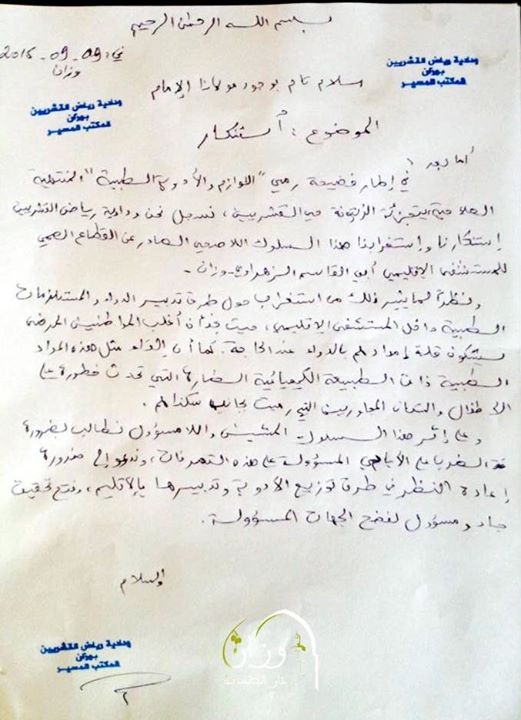 بسم الله الرحمان الرحيم
في: 09-09-2015
وزان
ودادية رياض القشريين
بوزان
المكتب المسير
ودادية رياض القشريين
بوزان
المكتب المسير
سلام تام بوجود مولانا الإمام
الموضوع: استنكار
أما بعد،
في إطار فضيحة رمي "اللوازم والأدوية الطبية" المنتهية
الصلاحية بتجزئة الزيتونة حي القشريين، نسجل نحن ودادية رياض القشريين
إستنكارنا وإستغرابنا هذا السلوك اللاصحي الصادر عن القطاع الصحي
للمستشفى الإقليمي أبي القاسم الزهراوي-وزان-
ونظرا لما يثير ذلك من استغراب حول طرق تدبير الدواء والمستلزمات
الطبية داخل المستشفى الإقليمي، حيث نجد أن أغلب المواطنين المرضى
يشتكون قلة إمدادهم بالدواء عند الحاجة. كما أن إلقاء مثل هذه المواد
الطبية ذات الطبيعة الكيميائية الضارة التي تحدث خطورة على
الأطفال والسكان المجاورين التي رميت بجانب سكناهم.
وعلى إثر هذا السلوك المشين واللامسؤول نطالب بضرورة
الضرب على الأيادي المسؤولة على هذه التصرفات، وندعو إلى ضرورة
إعادة النظر في طرق توزيع الأدوية وتدبيرها بالإقليم، وفتح تحقيق
جاد ومسؤول لفضح الجهات المسؤولة.
والسلام
ودادية رياض القشريين
بوزان
المكتب المسير
وزان